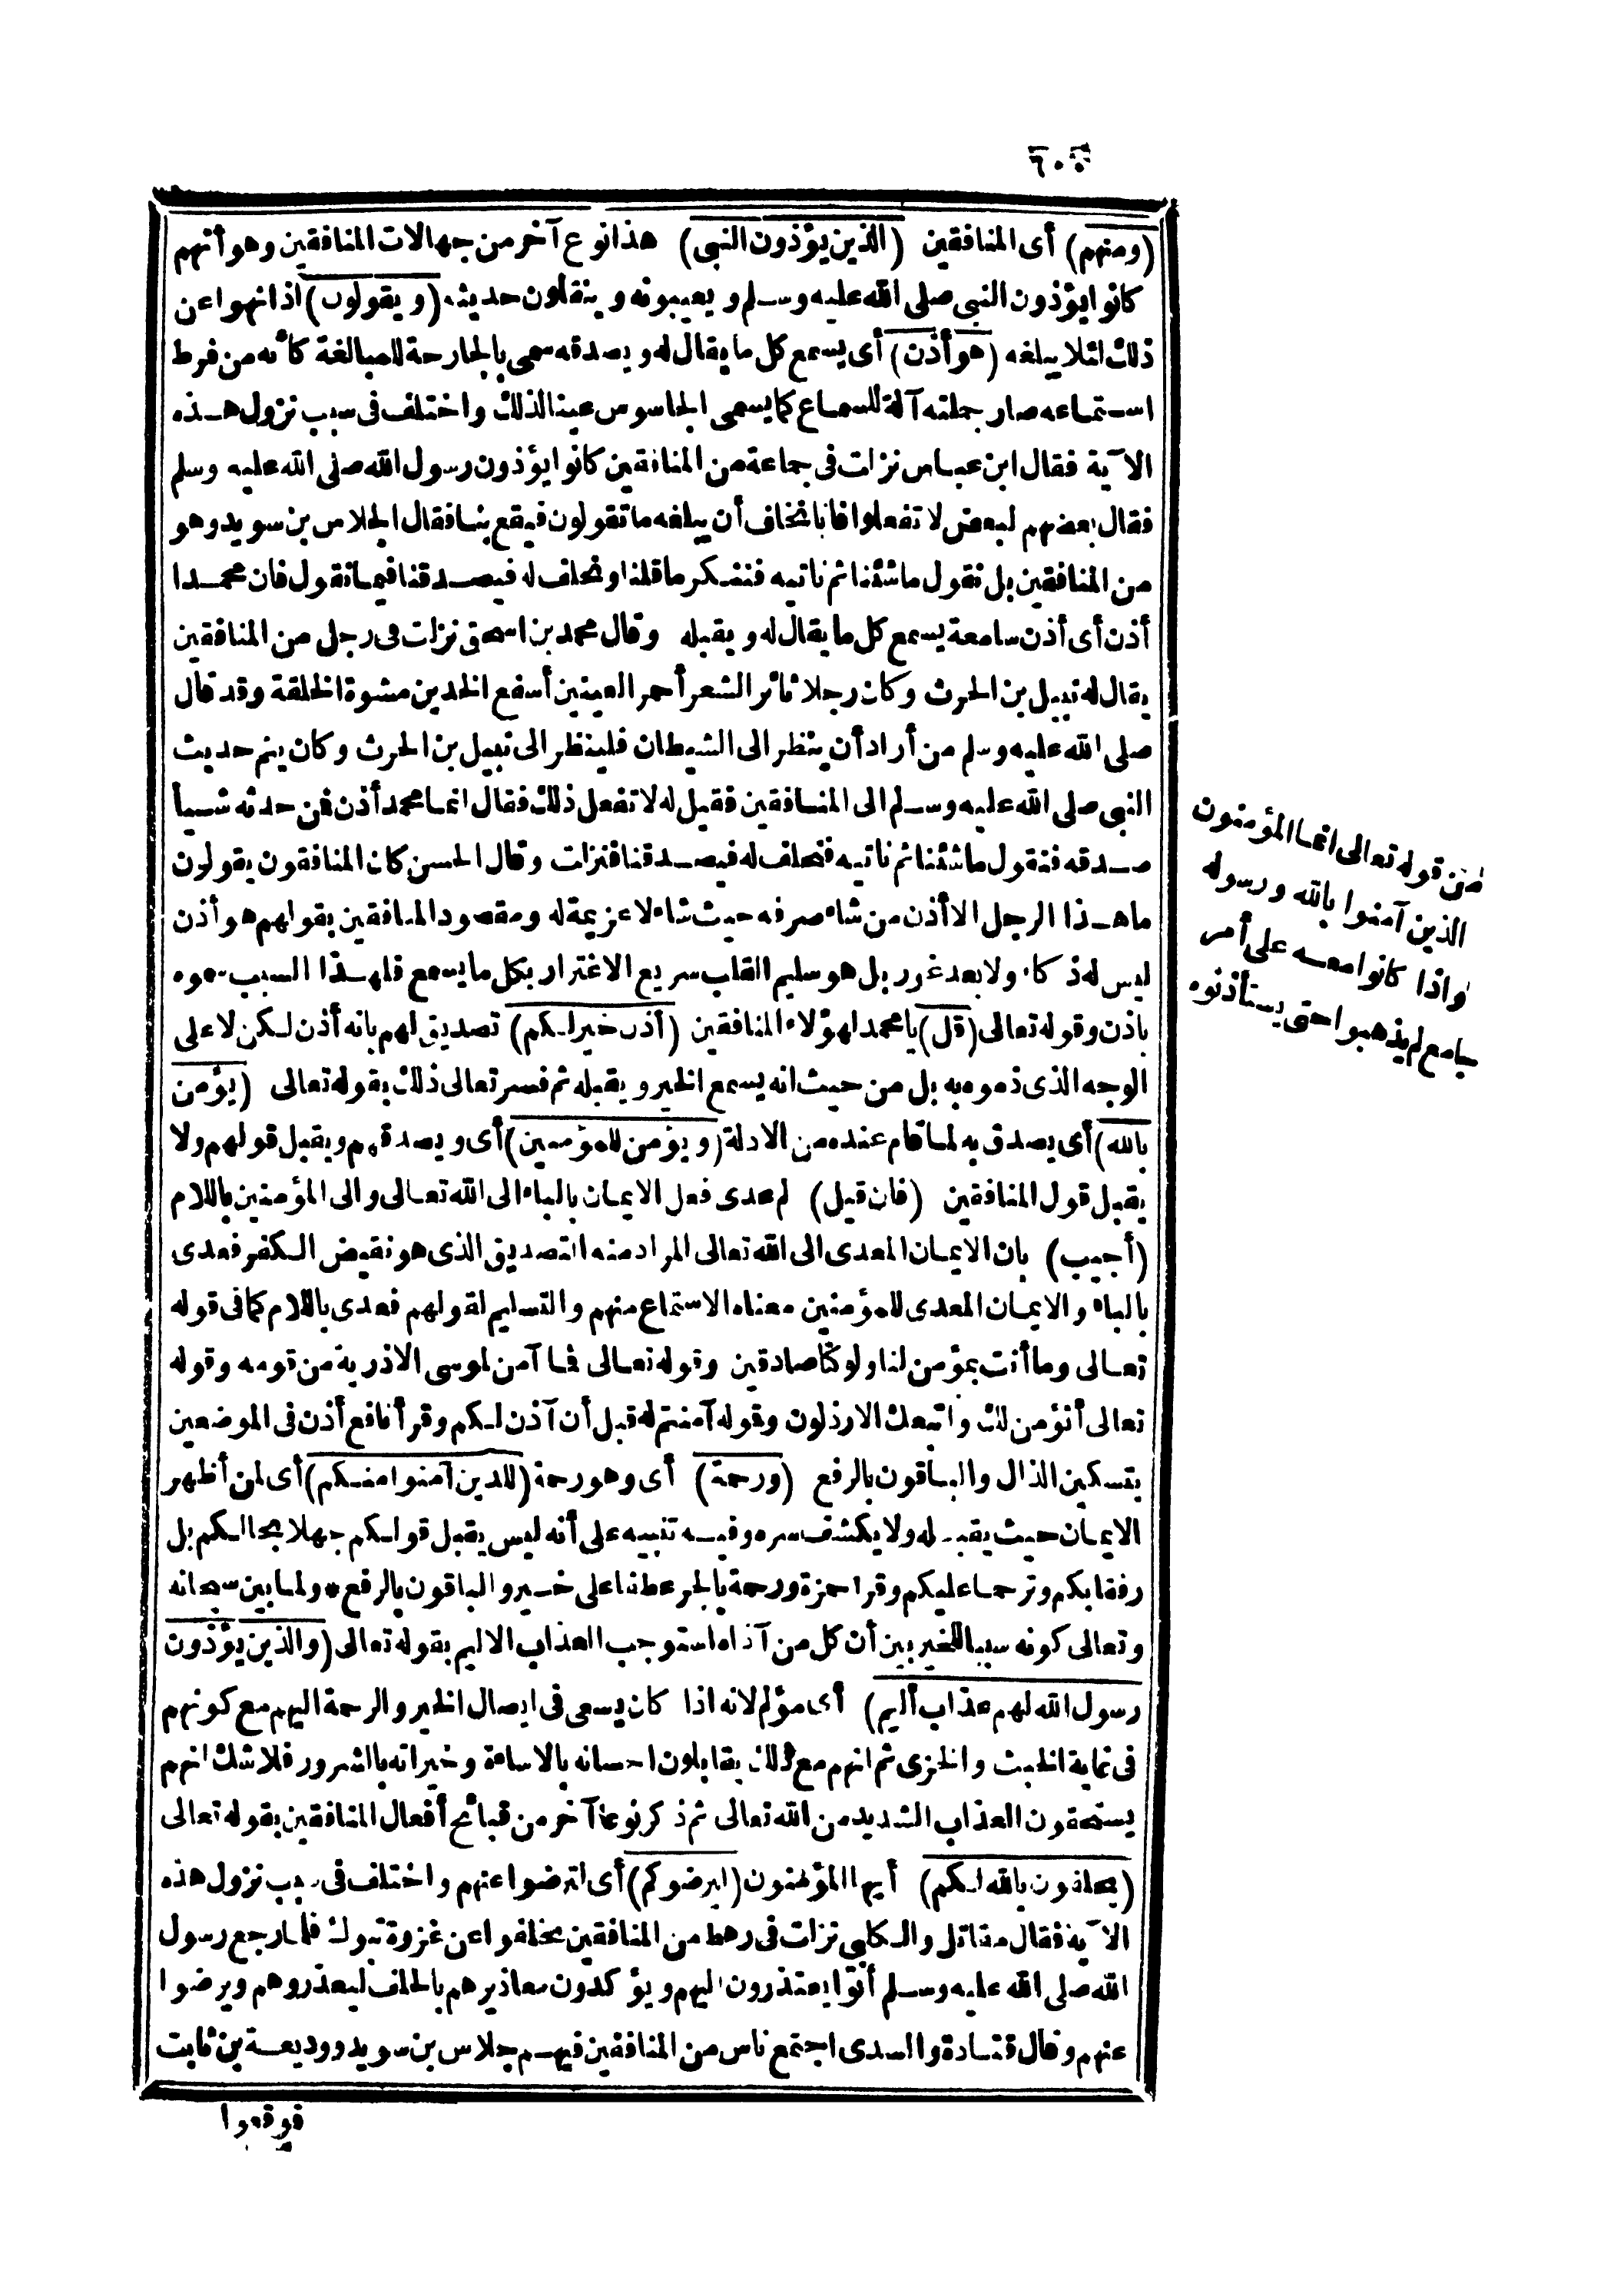 ٦٠٠
(ومنهم) أى المنافقين (الذين يؤذون النبى) هذا نوع آخر من جهالات المنافقين وهو أنهم
كانوا يؤذون النبى صلى الله عليه وسلم ويعيبونه وينقلون حديثه (ويقولون) اذا نهوا عن
ذلك لئلا يبلغه (هو أذن) أى يسمع كل ما يقال له ويصدقه سمى بالجارحة للمبالغة كأنه من فرط
استماعه صار جملته آلة للسماع كما يسمى الجاسوس عينا لذلك واختلف فى سبب نزول هذه
الآية فقال ابن عباس نزلت فى جماعة من المنافقين كانوا يؤذون رسول الله صلى الله عليه وسلم
فقال بعضهم لبعض لا تفعلوا فانا نخاف أن يبلغه ما تقولون فيقع بنا فقال الجلاس بن سويد وهو
من المنافقين بل نقول ما شئنا ثم ناتيه فننكر ما قلنا ونحلف له فيصدقنا فيما نقول فان محمدا
أذن أى أذن سامعة يسمع كل ما يقال له ويقبله وقال محمد بن اسحق نزلت فى رجل من المنافقين
يقال له نبيل بن الحرث وكان رجلا ثائر الشعر أحمر العينين أسفع الخدين مشوة الخلقة وقد قال
صلى الله عليه وسلم من أراد أن ينظر الى الشيطان فلينظر الى نبيل بن الحرث وكان ينم حديث
النبى صلى الله عليه وسلم الى المنافقين فقيل له لا تفعل ذلك فقال انما محمد أذن فمن حدثه شيأ
صدقه فنقول ما شئنا ثم ناتيه فنحلف له فيصدقنا فنزلت وقال الحسن كان المنافقون يقولون
ما هذا الرجل الا أذن من شاء صرفه حيث شاء لا عزيمة له ومقصود المنافقين بقولهم هو أذن
ليس له ذكاء ولا بعد غور بل هو سليم القلب سريع الاغترار بكل ما يسمع فلهذا السبب سموه
باذن وقوله تعالى (قل) يا محمد لهؤلاء المنافقين (أذن خير لكم) تصديق لهم بانه أذن لكن لا على
الوجه الذى ذموه به بل من حيث انه يسمع الخير ويقبله ثم فسر تعالى ذلك بقوله تعالى (يؤمن
بالله) أى يصدق به لما قام عنده من الادلة (ويؤمن للمؤمنين) أى ويصدقهم ويقبل قولهم ولا
يقبل قول المنافقين (فان قيل) لم عدى فعل الايمان بالباء الى الله تعالى والى المؤمنين باللام
(أجيب) بان الايمان المعدى الى الله تعالى المراد منه التصديق الذى هو نقيض الكفر فعدى
بالباء والايمان المعدى للمؤمنين معناه الاستماع منهم والتسليم لقولهم فعدى باللام كما فى قوله
تعالى وما أنت بمؤمن لنا ولو كنا صادقين وقوله تعالى فما آمن لموسى الا ذرية من قومه وقوله
تعالى أنؤمن لك واتبعك الارذلون وقوله آمنتم له قبل أن آذن لكم وقرأ نافع أذن فى الموضعين
بتسكين الذال والباقون بالرفع (ورحمة) أى وهو رحمة (للذين آمنوا منكم) أى لمن أظهر
الايمان حيث يقبله ولا يكشف سره وفيه تنبيه على أنه ليس يقبل قولكم جهلا بحالكم بل
رفقا بكم وترحما عليكم وقرا حمزة ورحمة بالجر عطفا على خير والباقون بالرفع * ولما بين سبحانه
وتعالى كونه سببا للخير بين أن كل من آذاه استوجب العذاب الاليم بقوله تعالى (والذين يؤذون
رسول الله لهم عذاب أليم) أى مؤلم لانه اذا كان يسعى فى ايصال الخير والرحمة اليهم مع كونهم
فى غاية الخبث والخزى ثم انهم مع ذلك يقابلون احسانه بالاساءة وخيراته بالشرور فلا شك انهم
يستحقون العذاب الشديد من الله تعالى ثم ذكر نوعا آخر من قبائح أفعال المنافقين بقوله تعالى
(يحلفون بالله لكم) أيها المؤمنون (ليرضوكم) أى لترضوا عنهم واختلف فى سبب نزول هذه
الآية فقال مقاتل والكلبى نزلت فى رهط من المنافقين تخلفوا عن غزوة تبوك فلما رجع رسول
الله صلى الله عليه وسلم أتوا يعتذرون اليهم ويؤكدون معاذيرهم بالحلف ليعذروهم ويرضوا
عنهم وقال قتادة والسدى اجتمع ناس من المنافقين فيهم جلاس بن سويد ووديعة بن ثابت
فوقعوا
من قوله تعالى انما المؤمنون
الذين آمنوا بالله ورسوله
واذا كانوا معه على أمر
جامع لم يذهبوا حتى يستأذنوه